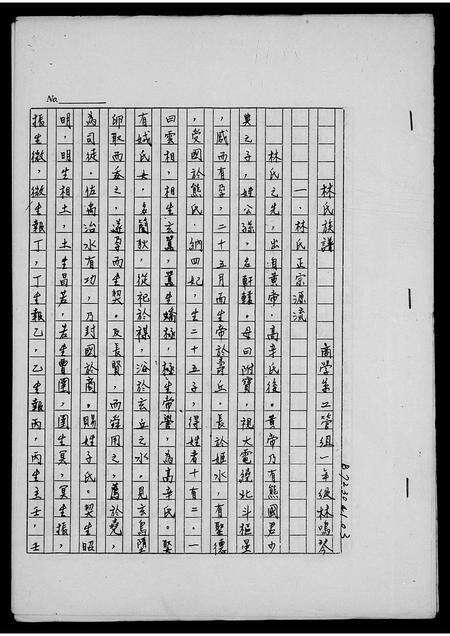 No.
林氏族譜　　商學第二管組一年級林鳴琴
B72304103
一、林氏正宗源流
林氏之先，出自黃帝，高辛氏後。黃帝乃有熊國君少
典之子，姓公孫，名軒轅。母曰附寶，視大電繞北斗樞星
，感而有孕，二十五月而生帝於壽丘。長於姬水，有聖德
，受國於熊氏。納四妃，生二十五子，得姓者十有二。一
曰雲相，相生玄囂，囂生蟜極，極生帝嚳，為高辛氏。娶
有娀氏女，名簡狄，從祀於禖，浴於玄丘之水。見玄鳥墮
卵取而吞之，遂孕而生契。及長賢，而舜用之，薦於堯，
為司徒。佐禹治水有功，乃封國於商。賜姓子氏。契生昭
明，明生相土，土生昌若，若生曹圉，圉生冥，冥生振，
振生微，微生報丁，丁生報乙，乙生報丙，丙生主壬，壬